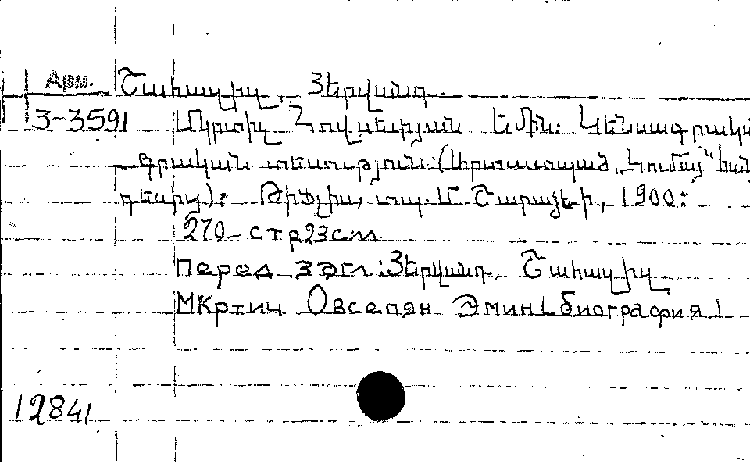 Арм. Շահազիզ, Յերվանդ.
3-3591 Մկրտիչ Հովսեփյան Էմին: Կենսագրակ
գրական տեսություն (Արտատպած „Լումայ" հան
դեսից): Թիֆլիս, տպ. Մ. Շարաձեի, 1900:
270 стр 23 см
Перед загл: Յերվանդ Շահազիզ
Мкртич Овсепян Эмин (биография)
12841